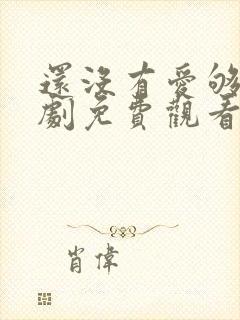 還沒有愛够
劇免費觀看
肖偉